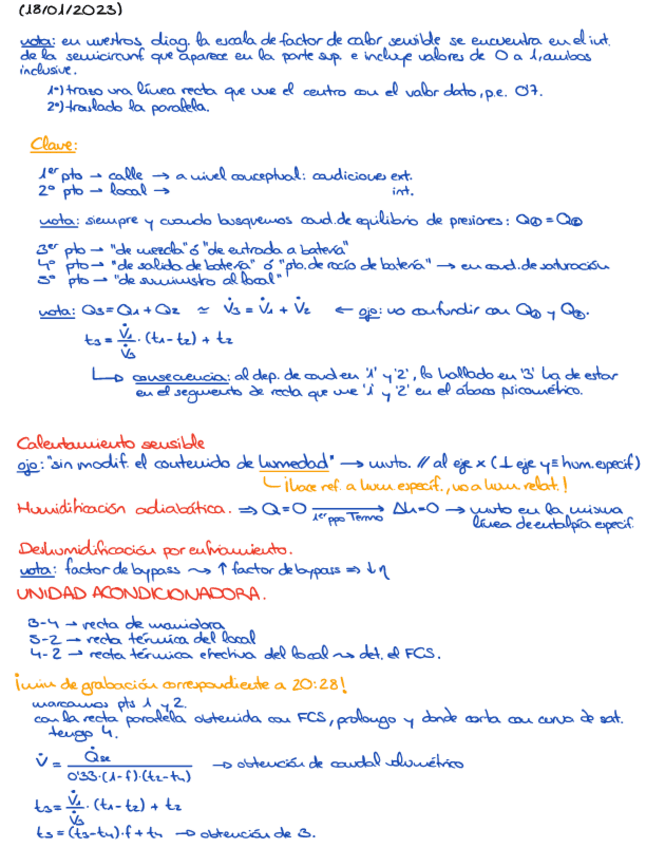 (18/01/2023)
nota: en nuestros diag. la escala de factor de calor sensible se encuentra en el int.
de la semicircunf que aparece en la parte sup. e incluye valores de 0 a 1, ambos
inclusive.
1º) trazo una línea recta que une el centro con el valor dato, p.e. 0'7.
2º) traslado la paralela.
Clave:
1er pto → calle → a nivel conceptual: condiciones ext.
2º pto → local → int.
nota: siempre y cuando busquemos cond. de equilibrio de presiones: Q① = Q②
3er pto → "de mezcla" ó "de entrada a batería"
4º pto → "de salida de batería" ó "pto. de rocío de batería" → en cond. de saturación
5º pto → "de suministro al local"
nota: Q3 = Q1 + Q2 ≃ V̇3 = V̇1 + V̇2 ← ojo: no confundir con Q① y Q②.
t3 = V̇1/V̇3 · (t1-t2) + t2
↳ consecuencia: al dep. de cond en '1' y '2', lo hallado en '3' ha de estar
en el segmento de recta que une '1' y '2' en el ábaco psicométrico.
Calentamiento sensible
ojo: "sin modif. el contenido de humedad" → mvto. // al eje x (⊥ eje y ≡ hum. especif)
↳ ¡hace ref. a hum específ., no a hum relat.!
Humidificación adiabática. ⇒ Q=0 → 1er ppo Termo Δh=0 → mvto en la misma
línea de entalpía especif.
Deshumidificación por enfriamiento.
nota: factor de bypass ⤳ ↑ factor de bypass ⇒ ↓η
UNIDAD ACONDICIONADORA.
3-4 → recta de maniobra
5-2 → recta térmica del local
4-2 → recta térmica efectiva del local ⤳ det. el FCS.
¡min de grabación correspondiente a 20:28!
marcamos pts 1 y 2.
con la recta paralela obtenida con FCS, prolongo y donde corta con curva de sat.
tengo 4.
V̇ = Q̇se / 0'33·(1-f)·(t2-t4) → obtención de caudal volumétrico
t3 = V̇1/V̇3 · (t1-t2) + t2
t5 = (t3-t4)·f + t4 → obtención de 3.